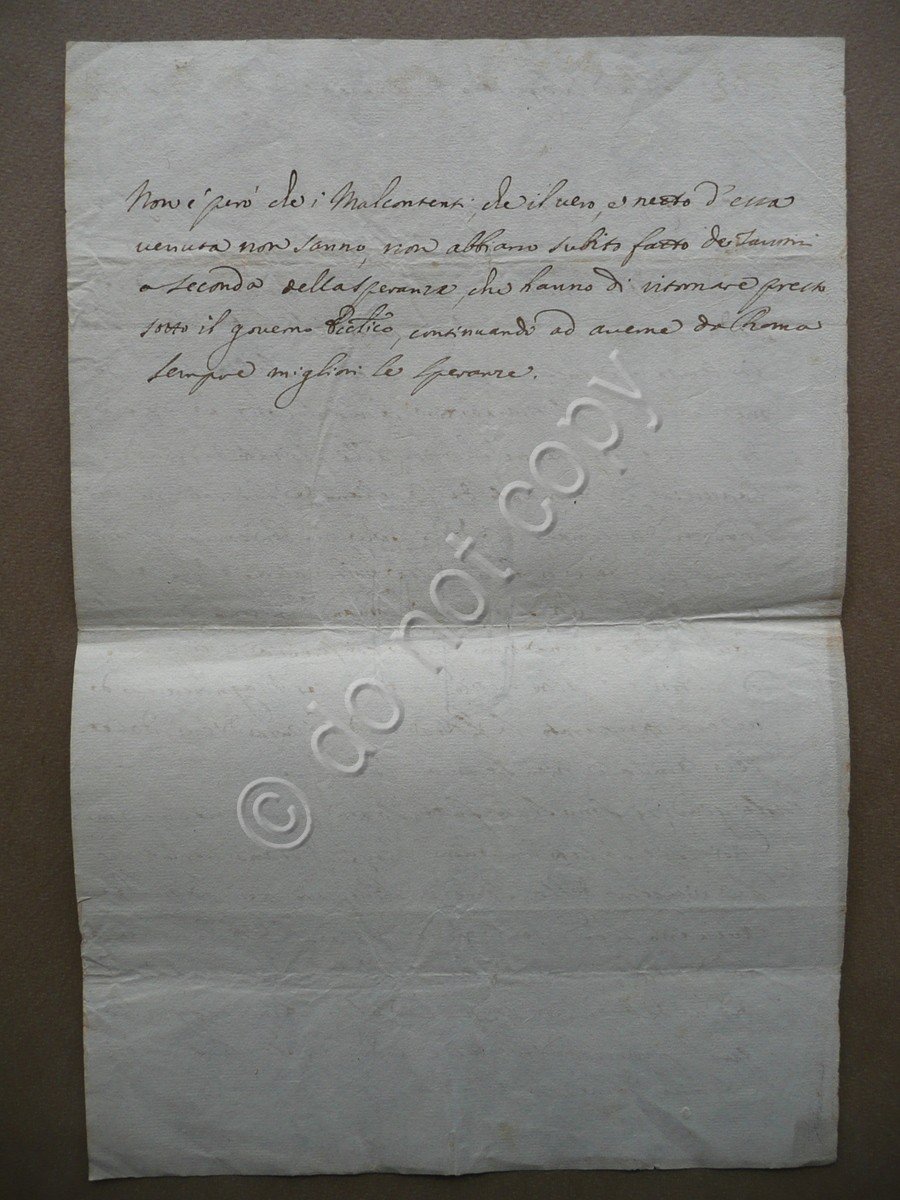 Non é peró che i Malcontenti, che il vero, e netto d'essa
venuta non sanno, non abbiano subito fatto de
a seconda della speranza, che hanno di ritornare presto
sotto il governo continuando ad averne da Roma
sempre migliori le speranze.
© do not copy